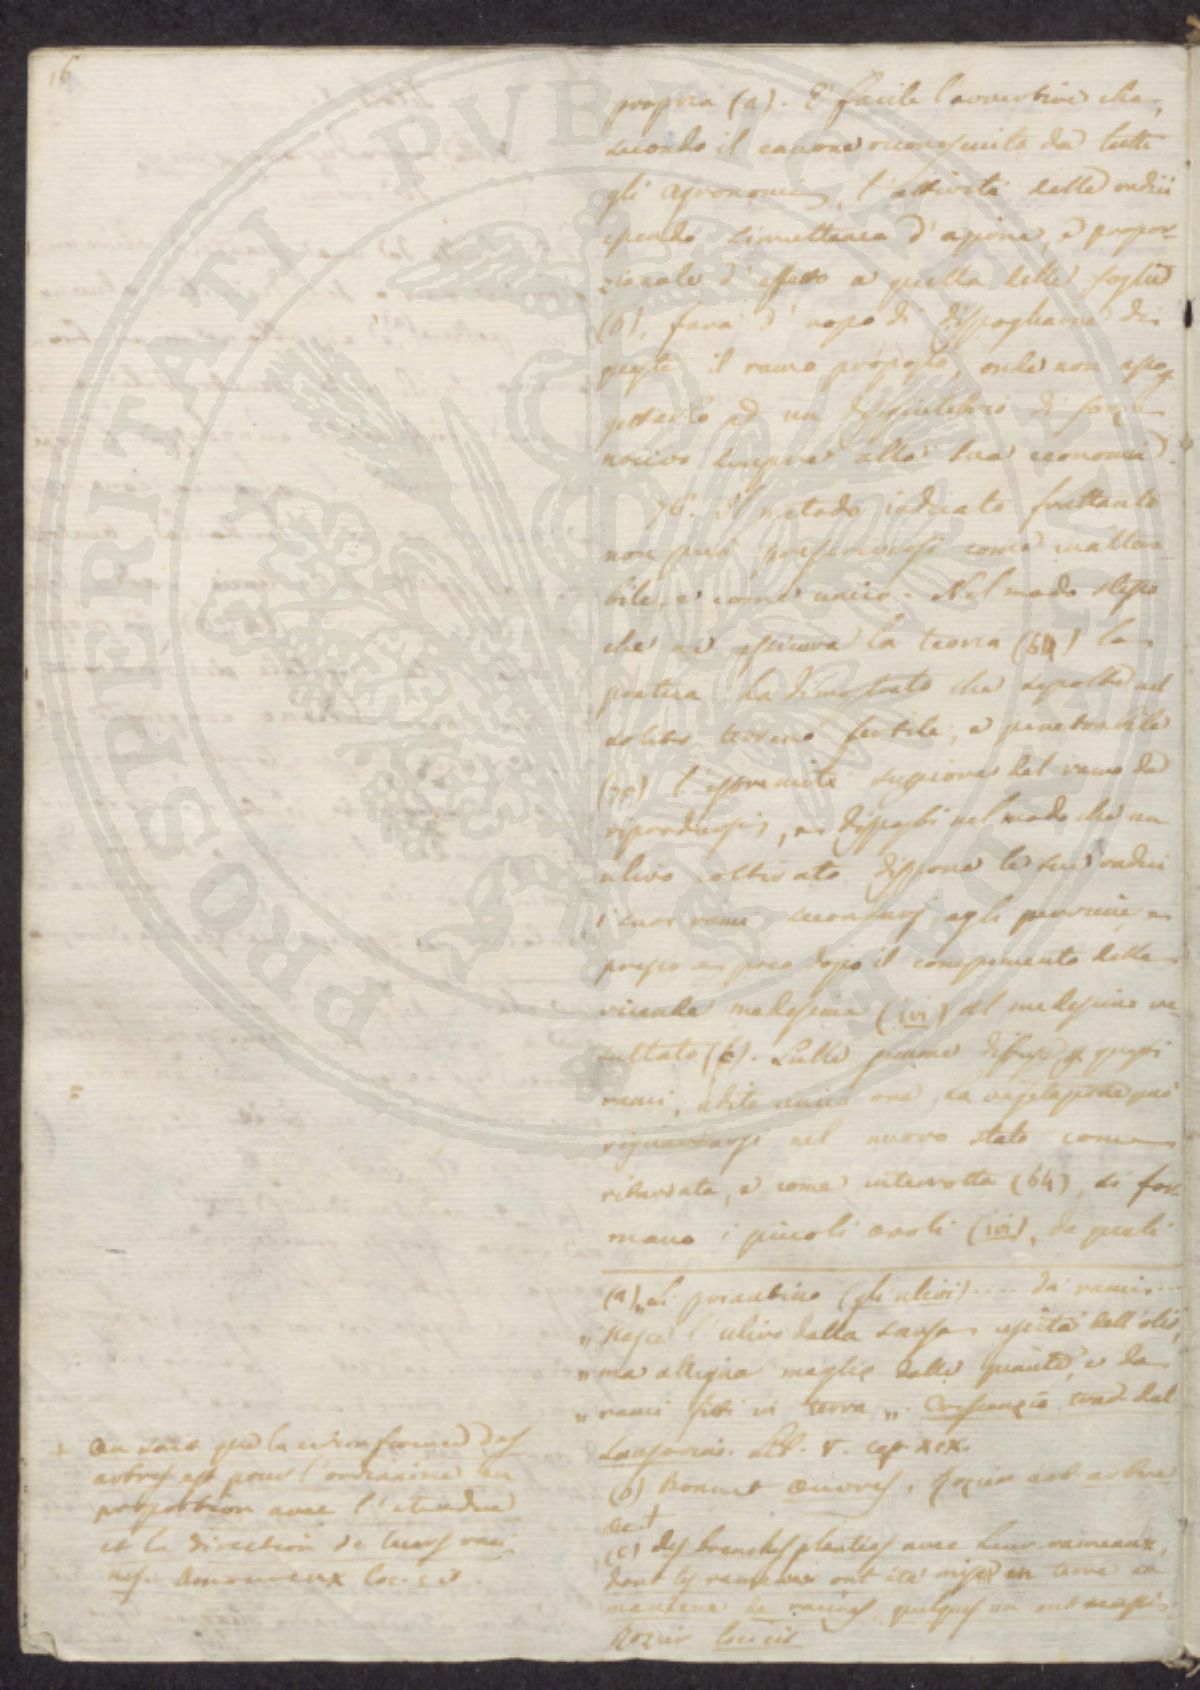 16
propria (a). È facile l'avvertire che,
secondo il canone riconosciuto da tutti
gli agronomi, l'attività delle radici
essendo simultanea d'azione, e propor-
zionale d'effetto a quella delle foglie
(b), farà d'uopo di dispogliarne di
queste il ramo proposto, onde non
ad un disequilibrio di forze
nocivo sempre alla sua economia.
76. Il metodo indicato frattanto
non può prescriversi come inaltera-
bile, e come unico. Nel modo stesso
che ne assicura la teoria (64) la
pratica ha dimostrato che sepolte nel
solito terreno fertile, e penetrabile
l'estremità superiore del ramo da
riprodursi, e disposti nel modo che un
ulivo coltivato dispone le sue radici
i suoi rami
presso a poco dopo il compimento delle
vicende medesime (ivi) al medesimo re-
sultato (c). Sulle gemme di questi
rami, ove la vegetazione può
risguardarsi nel nuovo stato come
ritardata, e come interrotta (64), si for-
mano i piccoli ovoli (ivi), da quali
(a) „Si piantino (gli ulivi) .... da' rami ...
„ Nasce l'ulivo dalla sansa uscita dell'olio,
„ ma alligna meglio dalle piante, e da
„ rami fitti in terra „. Crescenzio trad. dal
Sansovino. Lib. V. cap. XIX.
(b) Bonnet Œuvres, Rozier art. arbre
&c. +
(c) Des branches plantées avec leur rameaux,
dont les rameaux ont été mises en terre en
maniere de racines, quelques un ont
Rozier loc: cit
+ On sait que la circonference des
arbres est pour l'ordinaire en
proportion avec l'etendue
et la direction de leurs raci-
nes. Amoureux loc. cit.